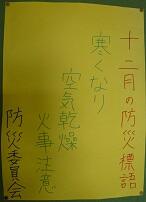 十二月の防災標語
寒くなり
空気乾燥
火事注意
防災委員会